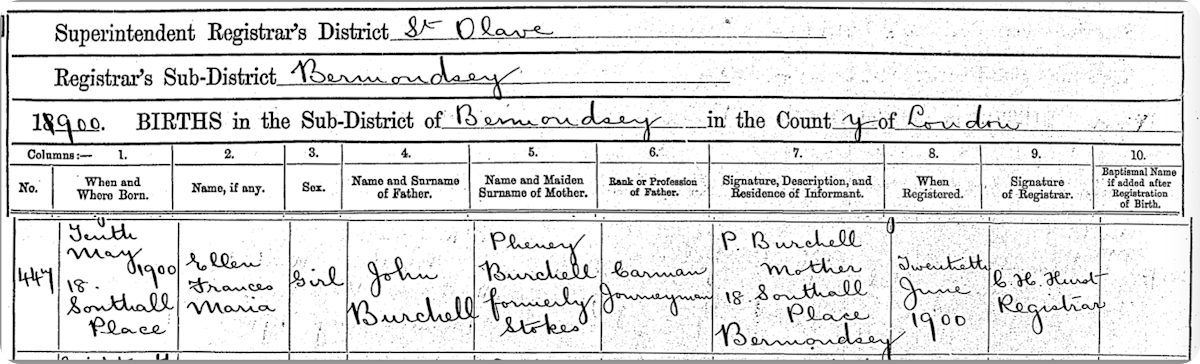 Superintendent Registrar's District St Olave
Registrar's Sub-District Bermondsey
1900. BIRTHS in the Sub-District of Bermondsey in the County of London
Columns:— 1. 2. 3. 4. 5. 6. 7. 8. 9. 10.
No. When and Where Born. Name, if any. Sex. Name and Surname of Father. Name and Maiden Surname of Mother. Rank or Profession of Father. Signature, Description, and Residence of Informant. When Registered. Signature of Registrar. Baptismal Name if added after Registration of Birth.
447
Tenth
May
1900
18.
Southall
Place
Ellen
Frances
Maria
Girl
John
Burchell
Pheney
Burchell
formerly
Stokes
Carman
Journeyman
P. Burchell
Mother
18 Southall
Place
Bermondsey
Twentieth
June
1900
C. H. Hurst
Registrar